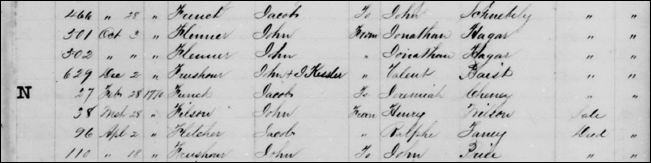 466 " 28 " Funct Jacob To John Schnebely " "
501 Oct 3 " Flenner John From Jonathan Hagar " "
502 " " " Flenner John " Jonathan Hagar " "
629 Dec 2 " Funshour John + J Kessler " Valent " "
N 27 Feb 28 1770 Funct Jacob To Jeremiah Cheney " "
38 Mch 28 " Filson John From Henry Wilson Sale "
96 Apl 2 " Fletcher Jacob " Ralph Deed "
110 " 18 " Funshour John To John Price " "